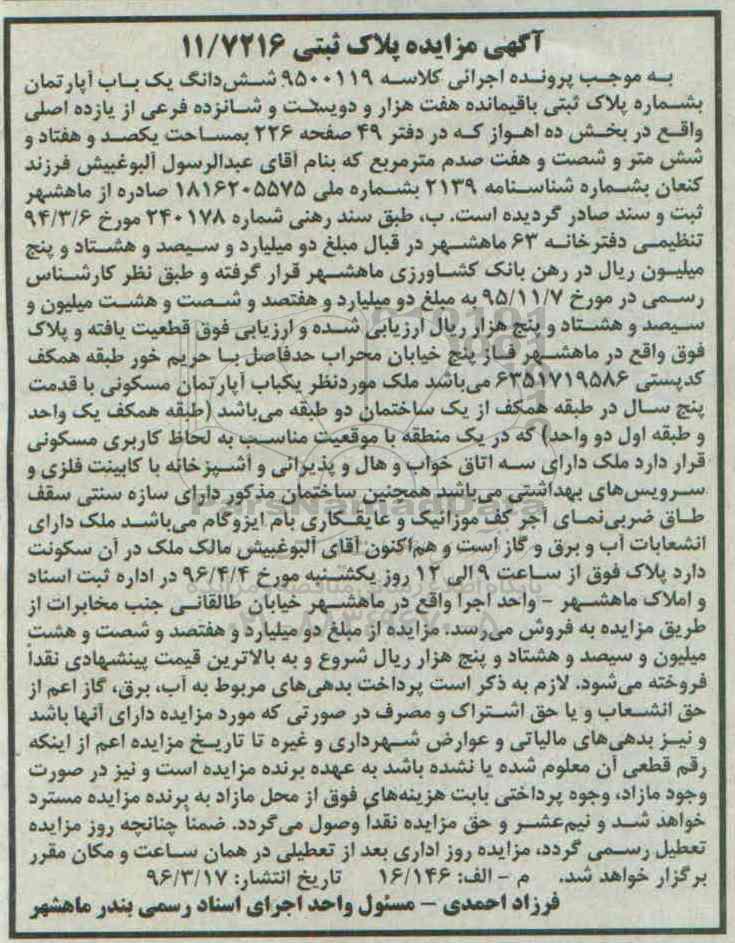 آگهی مزایده پلاک ثبتی ۱۱/۷۲۱۶
به موجب پرونده اجرائی کلاسه ۹۵۰۰۱۱۹ شش‌دانگ یک باب آپارتمان
بشماره پلاک ثبتی باقیمانده هفت هزار و دویست و شانزده فرعی از یازده اصلی
واقع در بخش ده اهواز که در دفتر ۴۹ صفحه ۲۲۶ بمساحت یکصد و هفتاد و
شش متر و شصت و هفت صدم مترمربع که بنام آقای عبدالرسول آلبوغبیش فرزند
کنعان بشماره شناسنامه ۲۱۳۹ بشماره ملی ۱۸۱۶۲۰۵۵۷۵ صادره از ماهشهر
ثبت و سند صادر گردیده است. ب، طبق سند رهنی شماره ۲۴۰۱۷۸ مورخ ۹۴/۳/۶
تنظیمی دفترخانه ۶۳ ماهشهر در قبال مبلغ دو میلیارد و سیصد و هشتاد و پنج
میلیون ریال در رهن بانک کشاورزی ماهشهر قرار گرفته و طبق نظر کارشناس
رسمی در مورخ ۹۵/۱۱/۷ به مبلغ دو میلیارد و هفتصد و شصت و هشت میلیون و
سیصد و هشتاد و پنج هزار ریال ارزیابی شده و ارزیابی فوق قطعیت یافته و پلاک
فوق واقع در ماهشهر فاز پنج خیابان محراب حدفاصل با حریم خور طبقه همکف
کدپستی ۶۳۵۱۷۱۹۵۸۶ می‌باشد ملک موردنظر یکباب آپارتمان مسکونی با قدمت
پنج سال در طبقه همکف از یک ساختمان دو طبقه می‌باشد (طبقه همکف یک واحد
و طبقه اول دو واحد) که در یک منطقه با موقعیت مناسب به لحاظ کاربری مسکونی
قرار دارد ملک دارای سه اتاق خواب و هال و پذیرائی و آشپزخانه با کابینت فلزی و
سرویس‌های بهداشتی می‌باشد همچنین ساختمان مذکور دارای سازه سنتی سقف
طاق ضربی‌نمای آجر کف موزائیک و عایقکاری بام ایزوگام می‌باشد ملک دارای
انشعابات آب و برق و گاز است و هم‌اکنون آقای آلبوغبیش مالک ملک در آن سکونت
دارد پلاک فوق از ساعت ۹ الی ۱۲ روز یکشنبه مورخ ۹۶/۴/۴ در اداره ثبت اسناد
و املاک ماهشهر - واحد اجرا واقع در ماهشهر خیابان طالقانی جنب مخابرات از
طریق مزایده به فروش می‌رسد. مزایده از مبلغ دو میلیارد و هفتصد و شصت و هشت
میلیون و سیصد و هشتاد و پنج هزار ریال شروع و به بالاترین قیمت پیشنهادی نقداً
فروخته می‌شود. لازم به ذکر است پرداخت بدهی‌های مربوط به آب، برق، گاز اعم از
حق انشعاب و یا حق اشتراک و مصرف در صورتی که مورد مزایده دارای آنها باشد
و نیز بدهی‌های مالیاتی و عوارض شهرداری و غیره تا تاریخ مزایده اعم از اینکه
رقم قطعی آن معلوم شده یا نشده باشد به عهده برنده مزایده است و نیز در صورت
وجود مازاد، وجوه پرداختی بابت هزینه‌های فوق از محل مازاد به برنده مزایده مسترد
خواهد شد و نیم‌عشر و حق مزایده نقداً وصول می‌گردد. ضمناً چنانچه روز مزایده
تعطیل رسمی گردد، مزایده روز اداری بعد از تعطیلی در همان ساعت و مکان مقرر
برگزار خواهد شد. م - الف: ۱۶/۱۴۶ تاریخ انتشار: ۹۶/۳/۱۷
فرزاد احمدی - مسئول واحد اجرای اسناد رسمی بندر ماهشهر